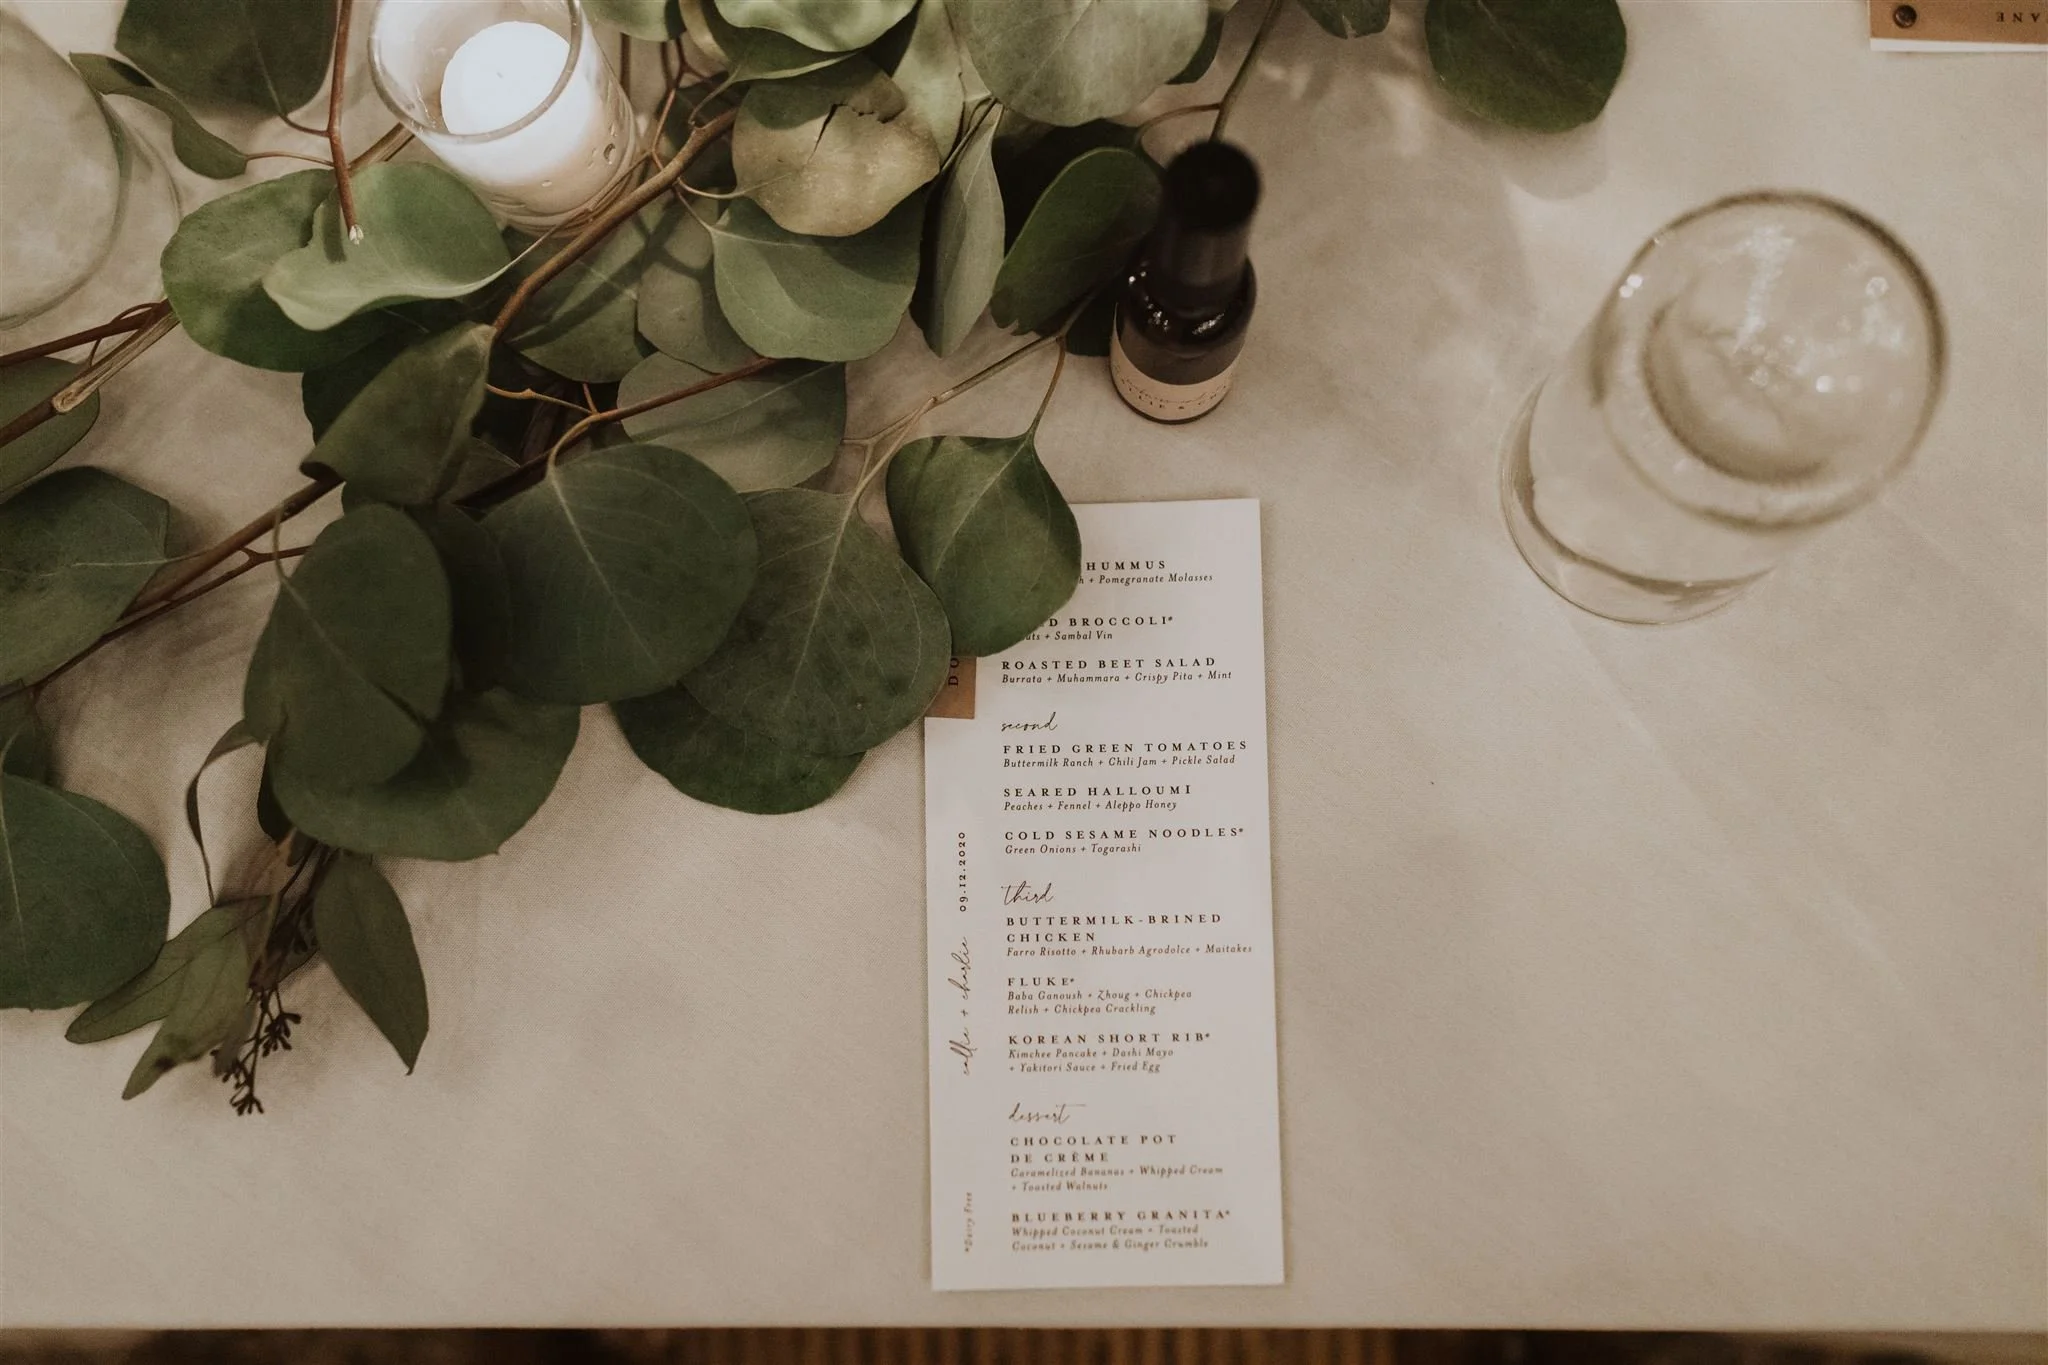 HUMMUS
+ Pomegranate Molasses
BROCCOLI*
+ Sambal Vin
ROASTED BEET SALAD
Burrata + Muhammara + Crispy Pita + Mint
second
FRIED GREEN TOMATOES
Buttermilk Ranch + Chili Jam + Pickle Salad
SEARED HALLOUMI
Peaches + Fennel + Aleppo Honey
COLD SESAME NOODLES*
Green Onions + Togarashi
third
BUTTERMILK-BRINED
CHICKEN
Farro Risotto + Rhubarb Agrodolce + Maitakes
FLUKE*
Baba Ganoush + Zhoug + Chickpea
Relish + Chickpea Crackling
KOREAN SHORT RIB*
Kimchee Pancake + Dashi Mayo
+ Yakitori Sauce + Fried Egg
dessert
CHOCOLATE POT
DE CRÈME
Caramelized Bananas + Whipped Cream
+ Toasted Walnuts
BLUEBERRY GRANITA*
Whipped Coconut Cream + Toasted
Coconut + Sesame & Ginger Crumble
callie + charlie 09.12.2020
*Dairy Free